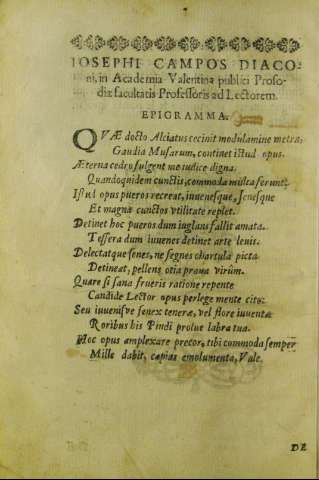 IOSEPHI CAMPOS DIACO-
ni, in Academia Valentina publici Proso-
diæ facultatis Professoris ad Lectorem.
EPIGRAMMA.
QVÆ docto Alciatus cecinit modulamine metra,
Gaudia Musarum, continet istud opus.
Æterna cedro fulgent me iudice digna.
Quandoquidem cunctis, commoda multa ferunt.
Istud opus pueros recreat, iuuenesque, senesque
Et magna cunctos vtilitate replet.
Detinet hoc pueros dum iuglans fallit amata.
Tessera dum iuuenes detinet arte leuis.
Delectatque senes, ne segnes chartula picta
Detineat, pellens otia praua virûm.
Quare si sana frueris ratione repente
Candide Lector opus perlege mente cito.
Seu iuuenisve senex teneræ, vel flore iuuentæ
Roribus his Pindi prolue labra tua.
Hoc opus amplexare precor, tibi commoda semper
Mille dabit, capias emolumenta, Vale.
DE